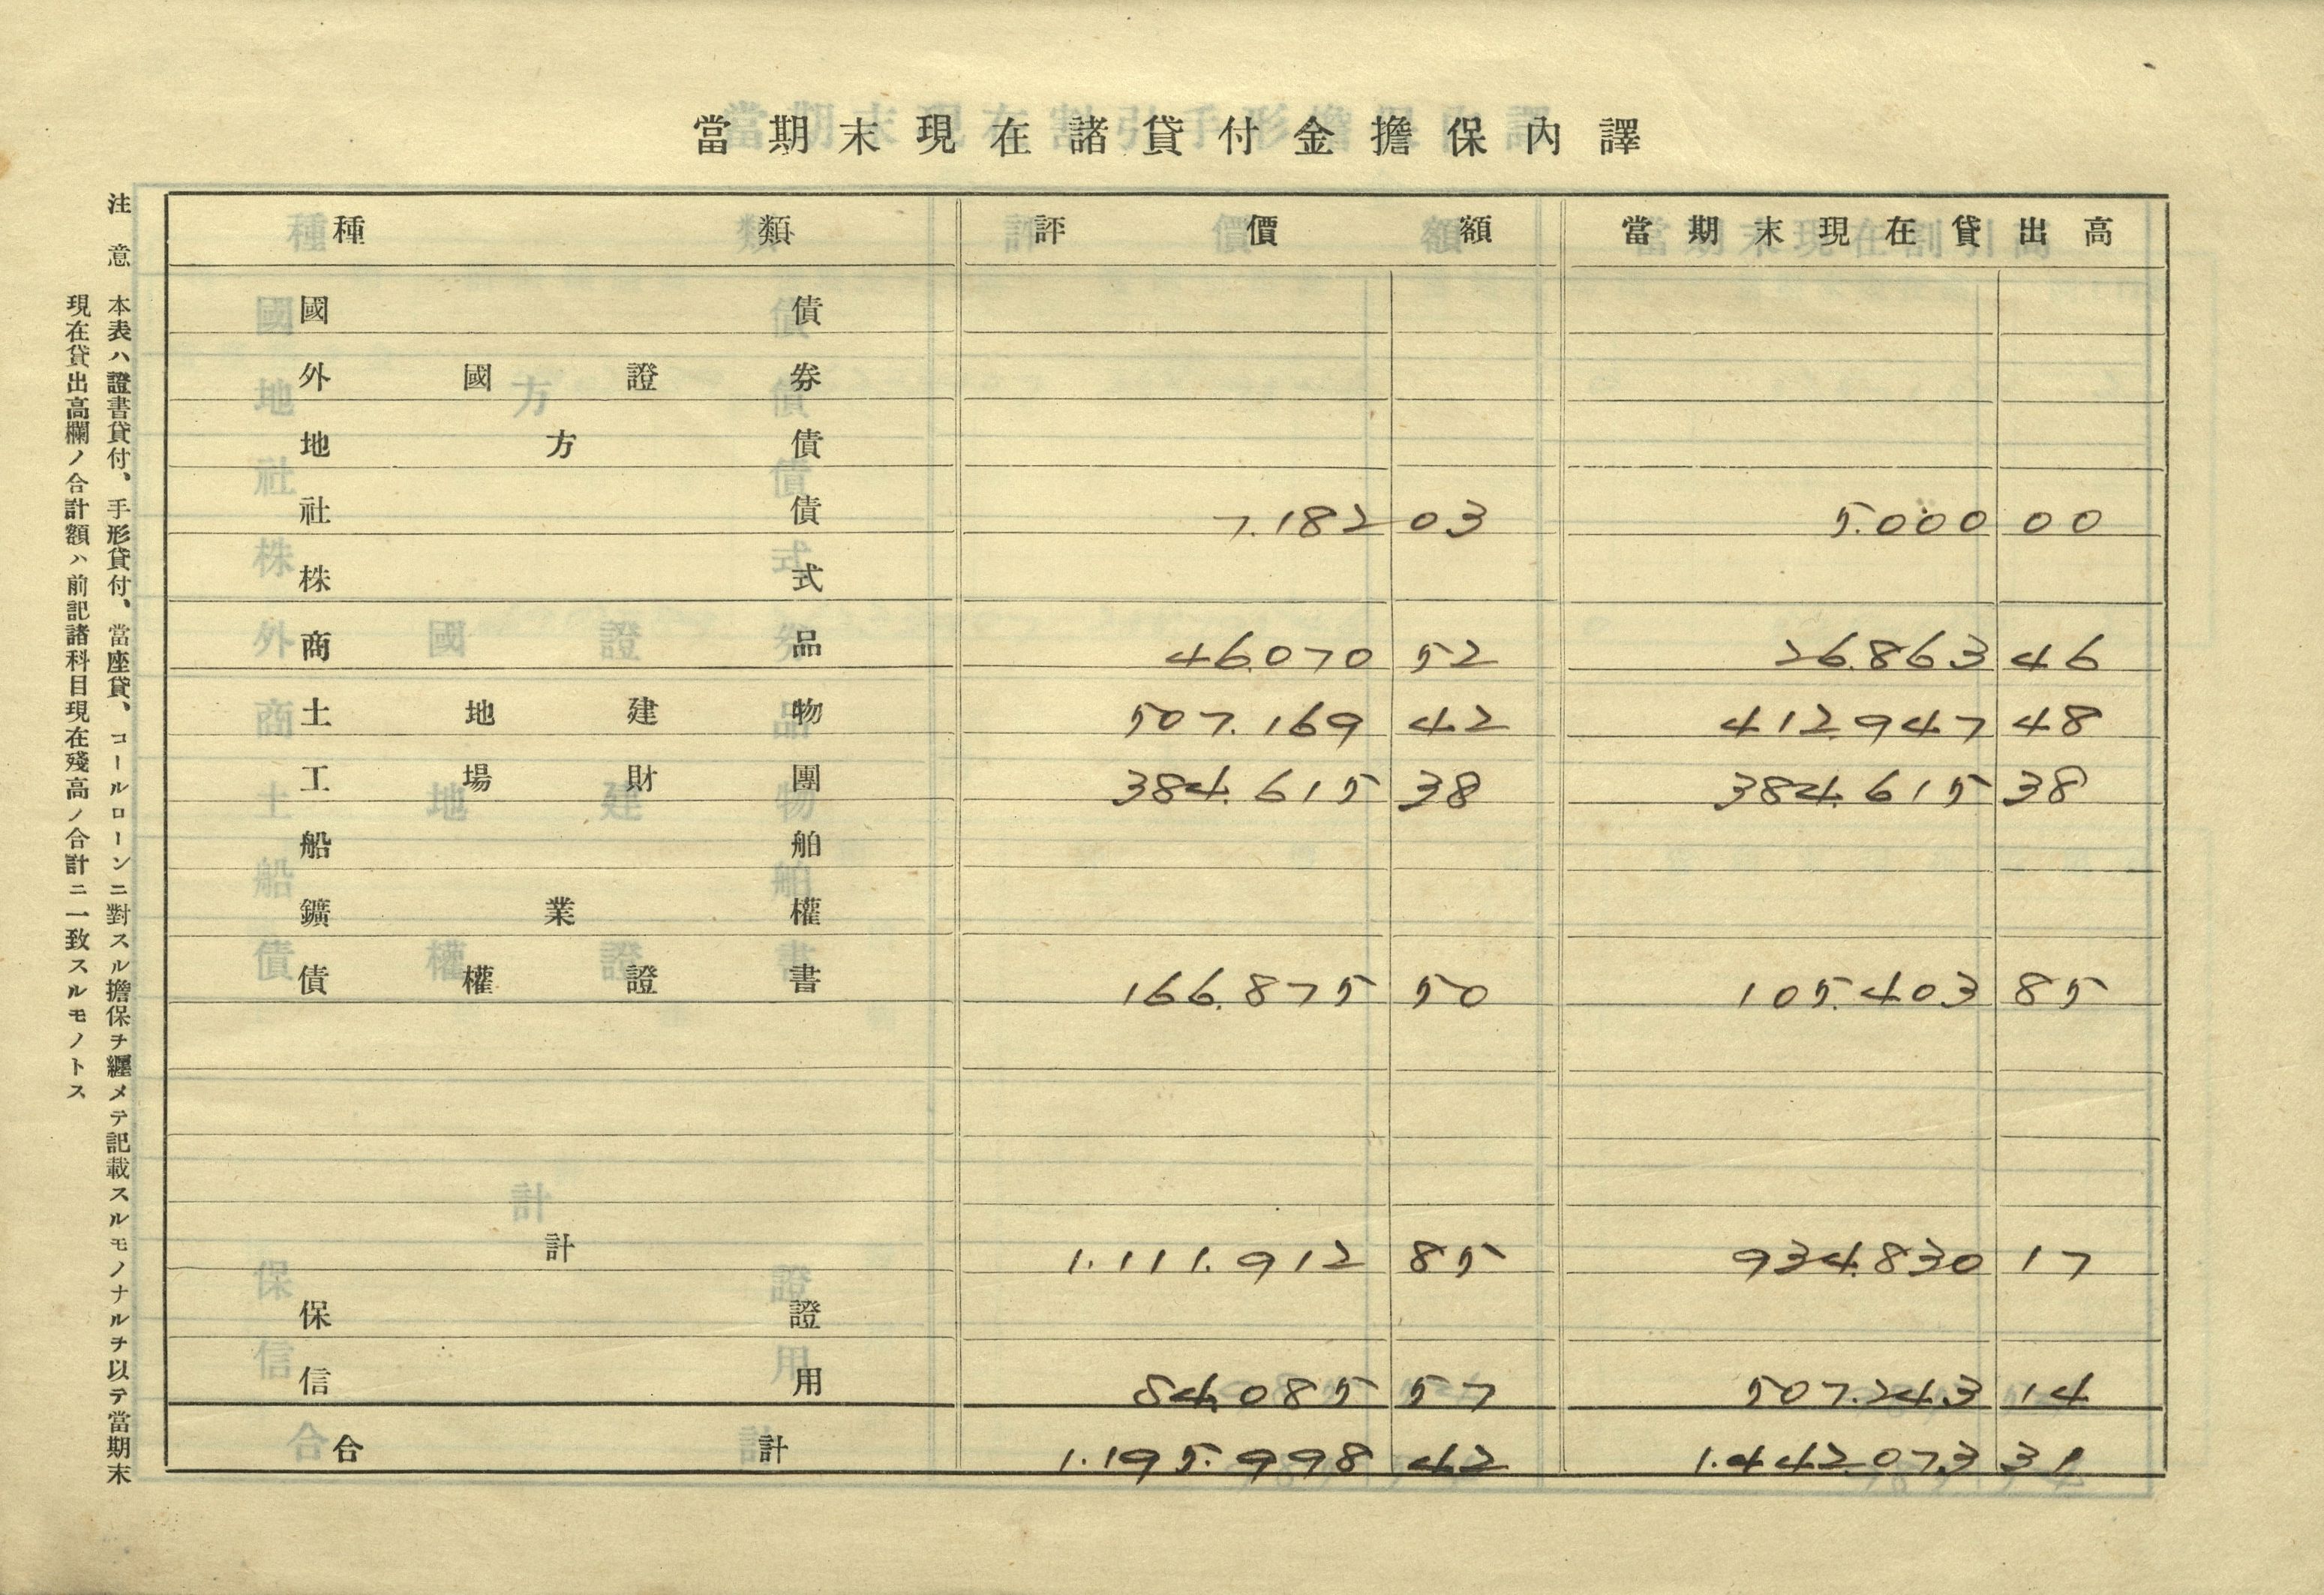 當期末現在諸貸付金擔保內譯
種類 評價額 當期末現在貸出高
國債
外國證券
地方債
社債 7.182 03 5.000 00
株式
商品 46.070 52 26.863 46
土地建物 507.169 42 412.947 48
工場財團 384.615 38 384.615 38
船舶
鑛業權
債權證書 166.875 50 105.403 85
計 1.111.912 85 934.830 17
保證
信用 84.085 57 507.243 14
合計 1.195.998 42 1.442.073 31
注意 本表ハ證書貸付、手形貸付、當座貸、コールローンニ對スル擔保ヲ纒メテ記載スルモノナルヲ以テ當期末
現在貸出高欄ノ合計額ハ前記諸科目現在殘高ノ合計ニ一致スルモノトス